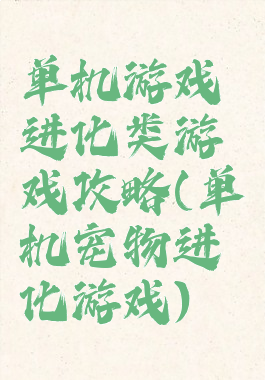 单机游戏
进化类游
戏攻略(单
机宠物进
化游戏)